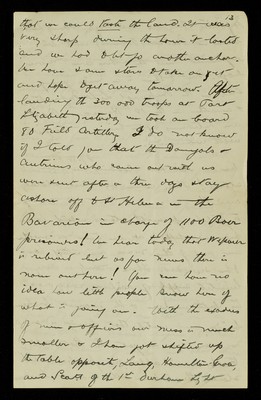 13
that we could took the land. It was
very sharp during the hour it lasted
and we had to put out another anchor.
We have some stores to take on yet
and hope to get away tomorrow. After
landing the 200 000 troops at Port
Elizabeth yesterday we took on board
80 Field Artillery. I do not know
if I told you that the Donegals &
Antrims who came out with us
were sent after a three days stay
ashore off to St Helena in the
Bavarian in charge of 1100 Boer
prisoners! We hear today that Wepener
is relieved but as for news there is
none out here! You can have no
idea how little people know here of
what is going on. With the exodus
of men & officers our mess is much
smaller & I have got shifted up
the table opposite, Lang, Hamilton Grace,
and Scott of the 1st Durham Light